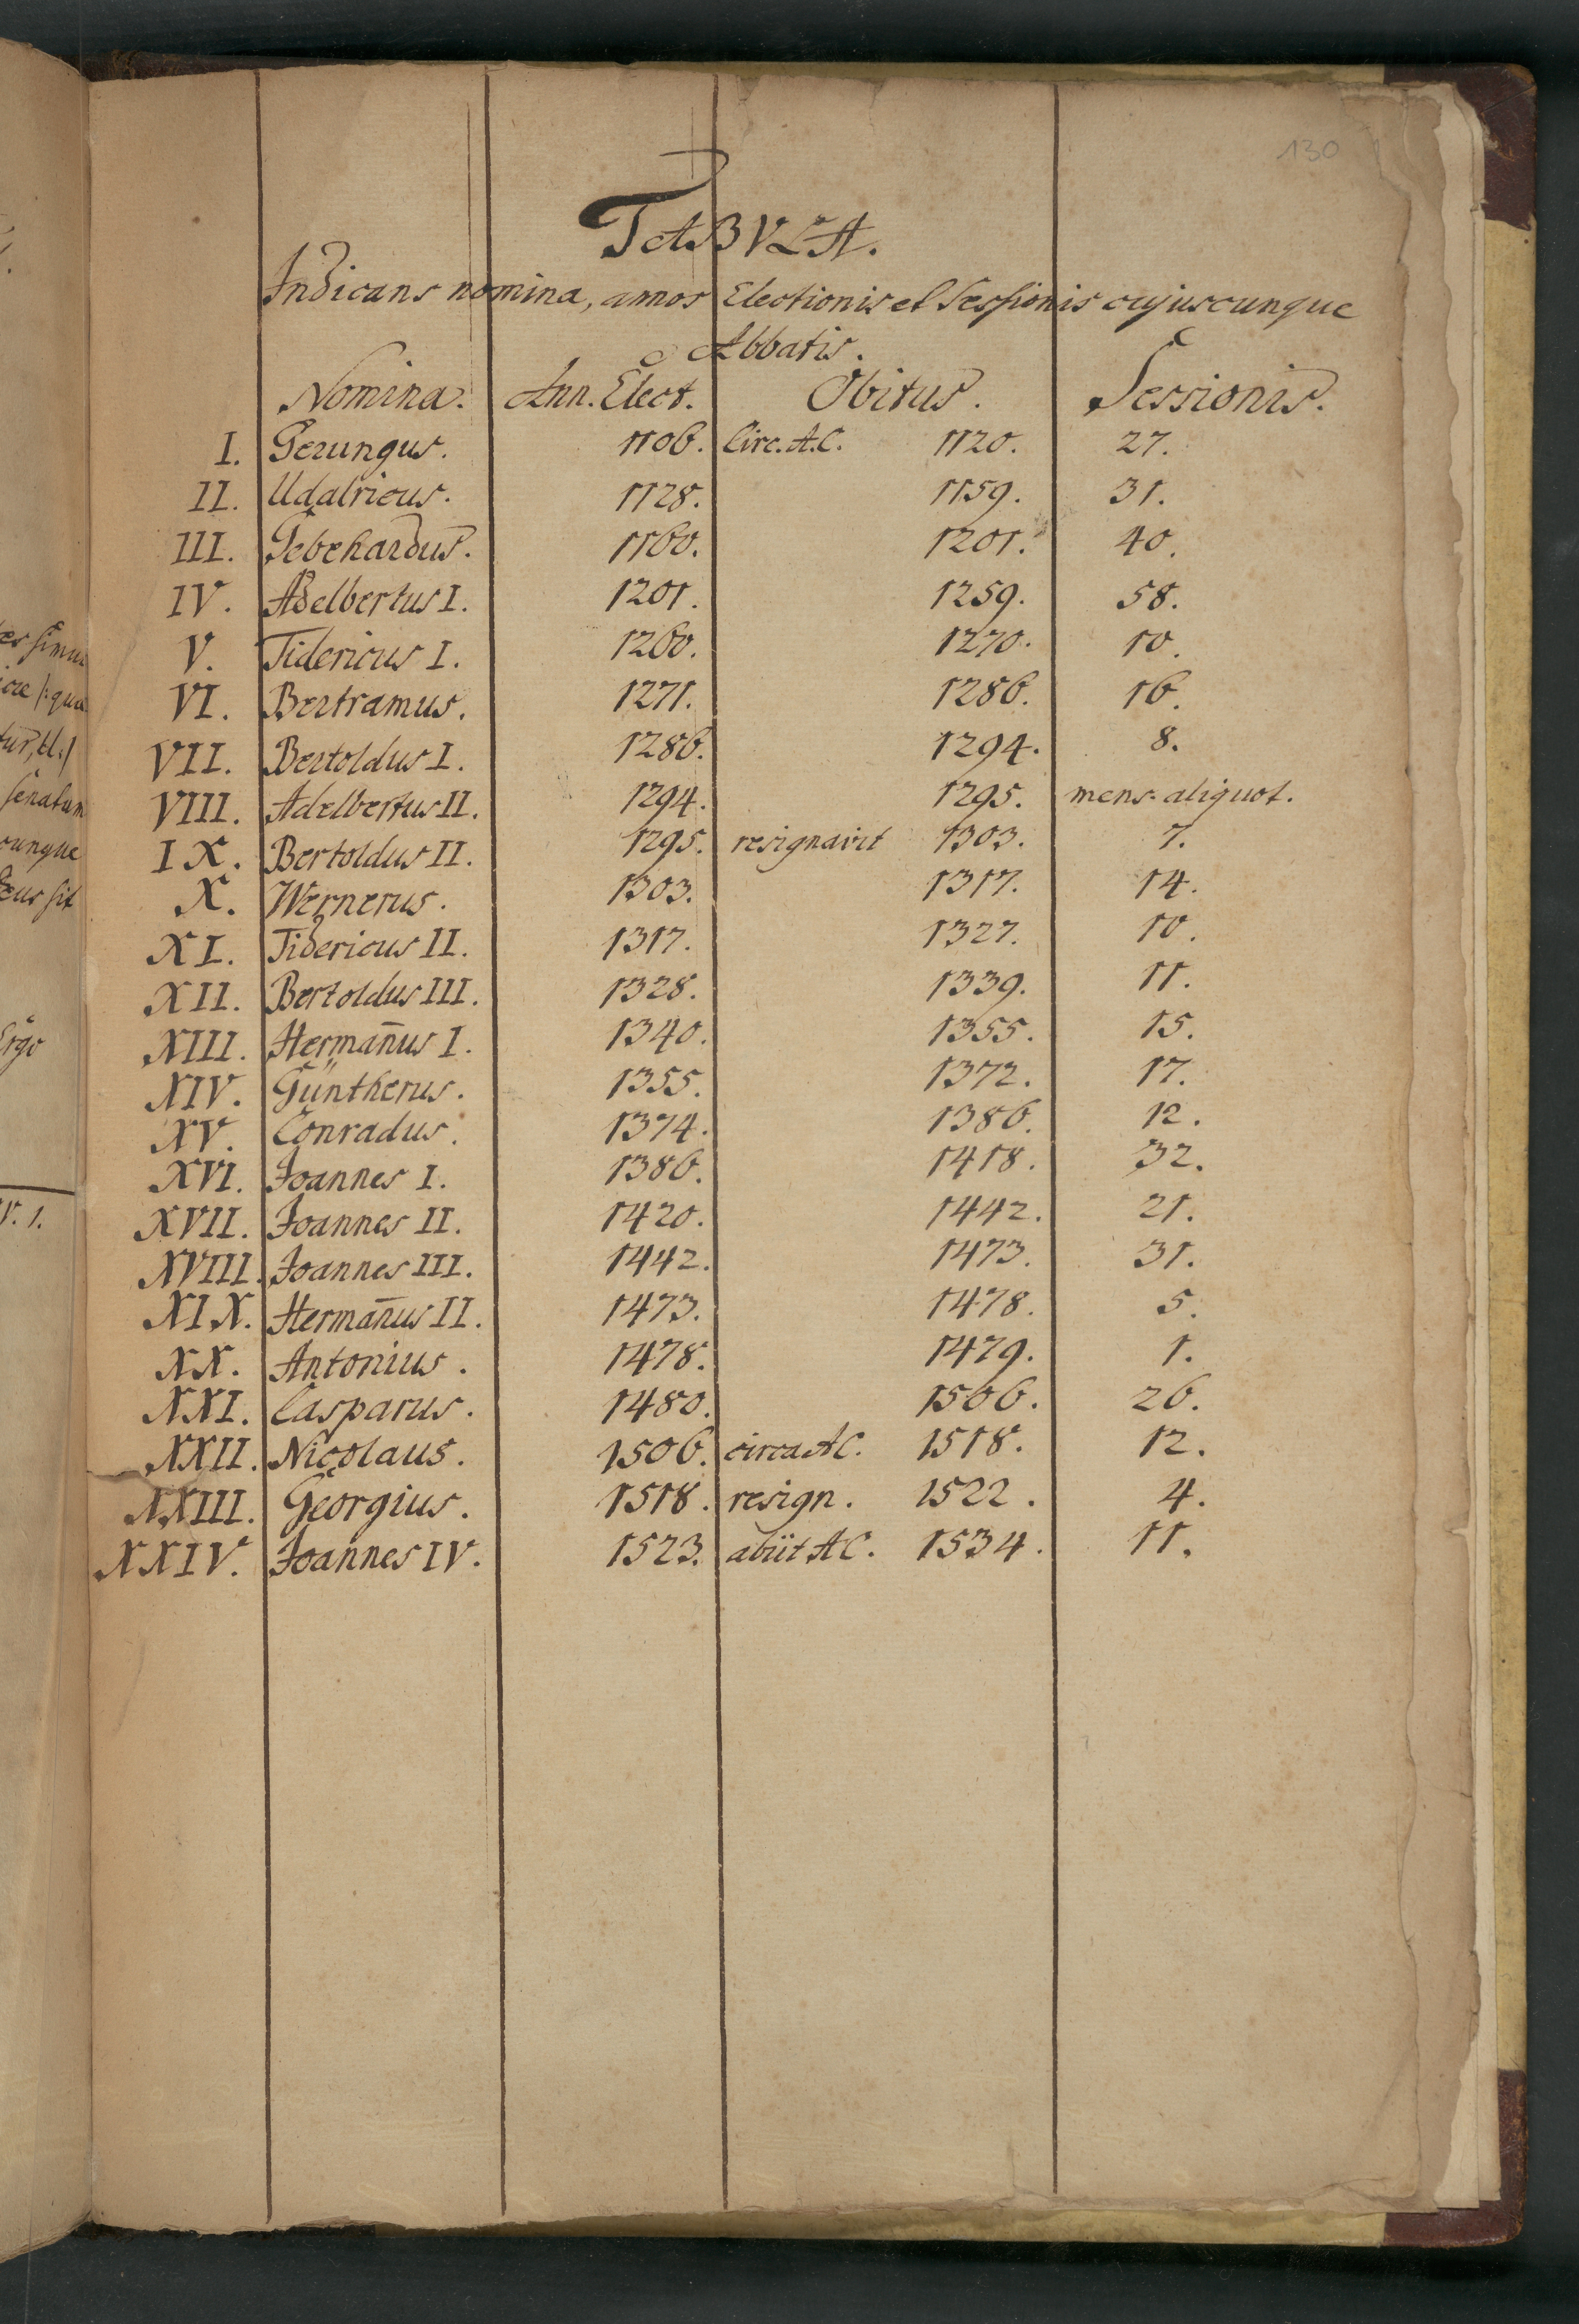 130
TABVLA.
Indicans nomina, annos Electionis et Sessionis cujuscunque
Abbatis.
Nomina. Ann. Elect. Obitus. Sessionis.
I. Gerungus. 1106. Circ. A.C. 1120. 27.
II. Udalricus. 1128. 1159. 31.
III. Gebehardus. 1160. 1201. 40.
IV. Adelbertus I. 1201. 1259. 58.
V. Tidericus I. 1260. 1270. 10.
VI. Bertramus. 1271. 1286. 16.
VII. Bertoldus I. 1286. 1294. 8.
VIII. Adelbertus II. 1294. 1295. mens. aliquot.
IX. Bertoldus II. 1295. resignavit 1303. 7.
X. Wernerus. 1303. 1317. 14.
XI. Tidericus II. 1317. 1327. 10.
XII. Bertoldus III. 1328. 1339. 11.
XIII. Herman̄us I. 1340. 1355. 15.
XIV. Güntherus. 1355. 1372. 17.
XV. Conradus. 1374. 1386. 12.
XVI. Joannes I. 1386. 1418. 32.
XVII. Joannes II. 1420. 1442. 21.
XVIII. Joannes III. 1442. 1473. 31.
XIX. Herman̄us II. 1473. 1478. 5.
XX. Antonius. 1478. 1479. 1.
XXI. Casparus. 1480. 1506. 26.
XXII. Nicolaus. 1506. circa AC. 1518. 12.
XXIII. Georgius. 1518. resign. 1522. 4.
XXIV. Joannes IV. 1523. abiit AC. 1534. 11.